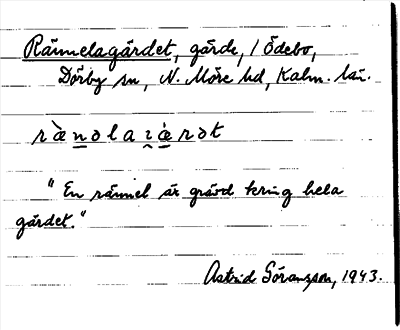 Rännelagärdet, gärde, / Ödebo,
Dörby sn, N. Möre hd, Kalm. län.
ræ̀nəlaɪæ̀rət
"En rännel är grävd kring hela
gärdet."
Astrid Göransson, 1943.